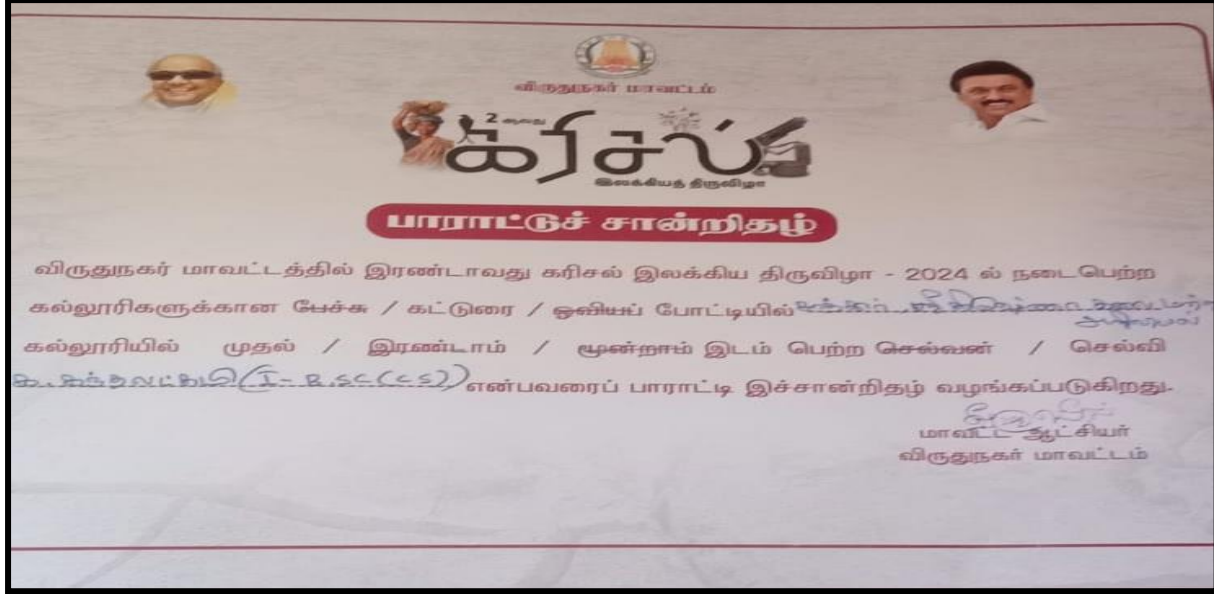 விருதுநகர் மாவட்டம்
2 ஆவது
கரிசல்
இலக்கியத் திருவிழா
பாராட்டுச் சான்றிதழ்
விருதுநகர் மாவட்டத்தில் இரண்டாவது கரிசல் இலக்கிய திருவிழா - 2024 ல் நடைபெற்ற
கல்லூரிகளுக்கான பேச்சு / கட்டுரை / ஓவியப் போட்டியில்
கல்லூரியில் முதல் / இரண்டாம் / மூன்றாம் இடம் பெற்ற செல்வன் / செல்வி
(I - B.SC (CS)) என்பவரைப் பாராட்டி இச்சான்றிதழ் வழங்கப்படுகிறது.
மாவட்ட ஆட்சியர்
விருதுநகர் மாவட்டம்